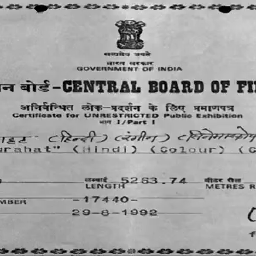 सत्यमेव जयते
भारत सरकार
GOVERNMENT OF INDIA
न बोर्ड-CENTRAL BOARD OF FI
अनिर्बन्धित लोक-प्रदर्शन के लिए प्रमाणपत्र
Certificate for UNRESTRICTED Public Exhibition
भाग I/Part I
(हिन्दी) (रंगीन)
urahat" (Hindi) (Colour) (C
लम्बाई 5283.74 मीटर रील
LENGTH METRES R
MBER -17440-
29-8-1992